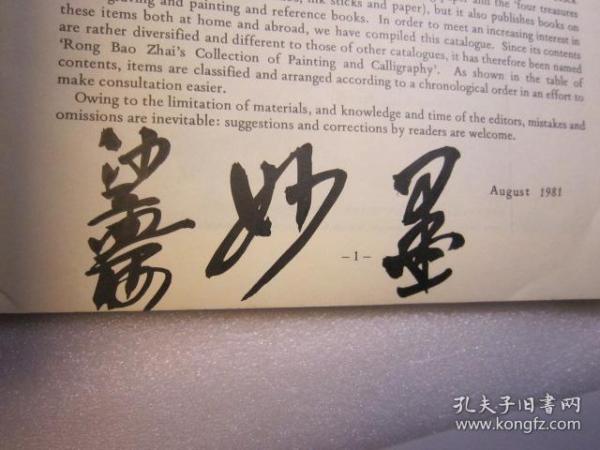 engraving and painting and reference books. In order to meet an increasing interest in
these items both at home and abroad, we have compiled this catalogue. Since its contents
are rather diversified and different to those of other catalogues, it has therefore been named
‘Rong Bao Zhai’s Collection of Painting and Calligraphy’. As shown in the table of
contents, items are classified and arranged according to a chronological order in an effort to
make consultation easier.
Owing to the limitation of materials, and knowledge and time of the editors, mistakes and
omissions are inevitable: suggestions and corrections by readers are welcome.
August 1981
墨妙
–1–
孔夫子旧书网
www.kongfz.com